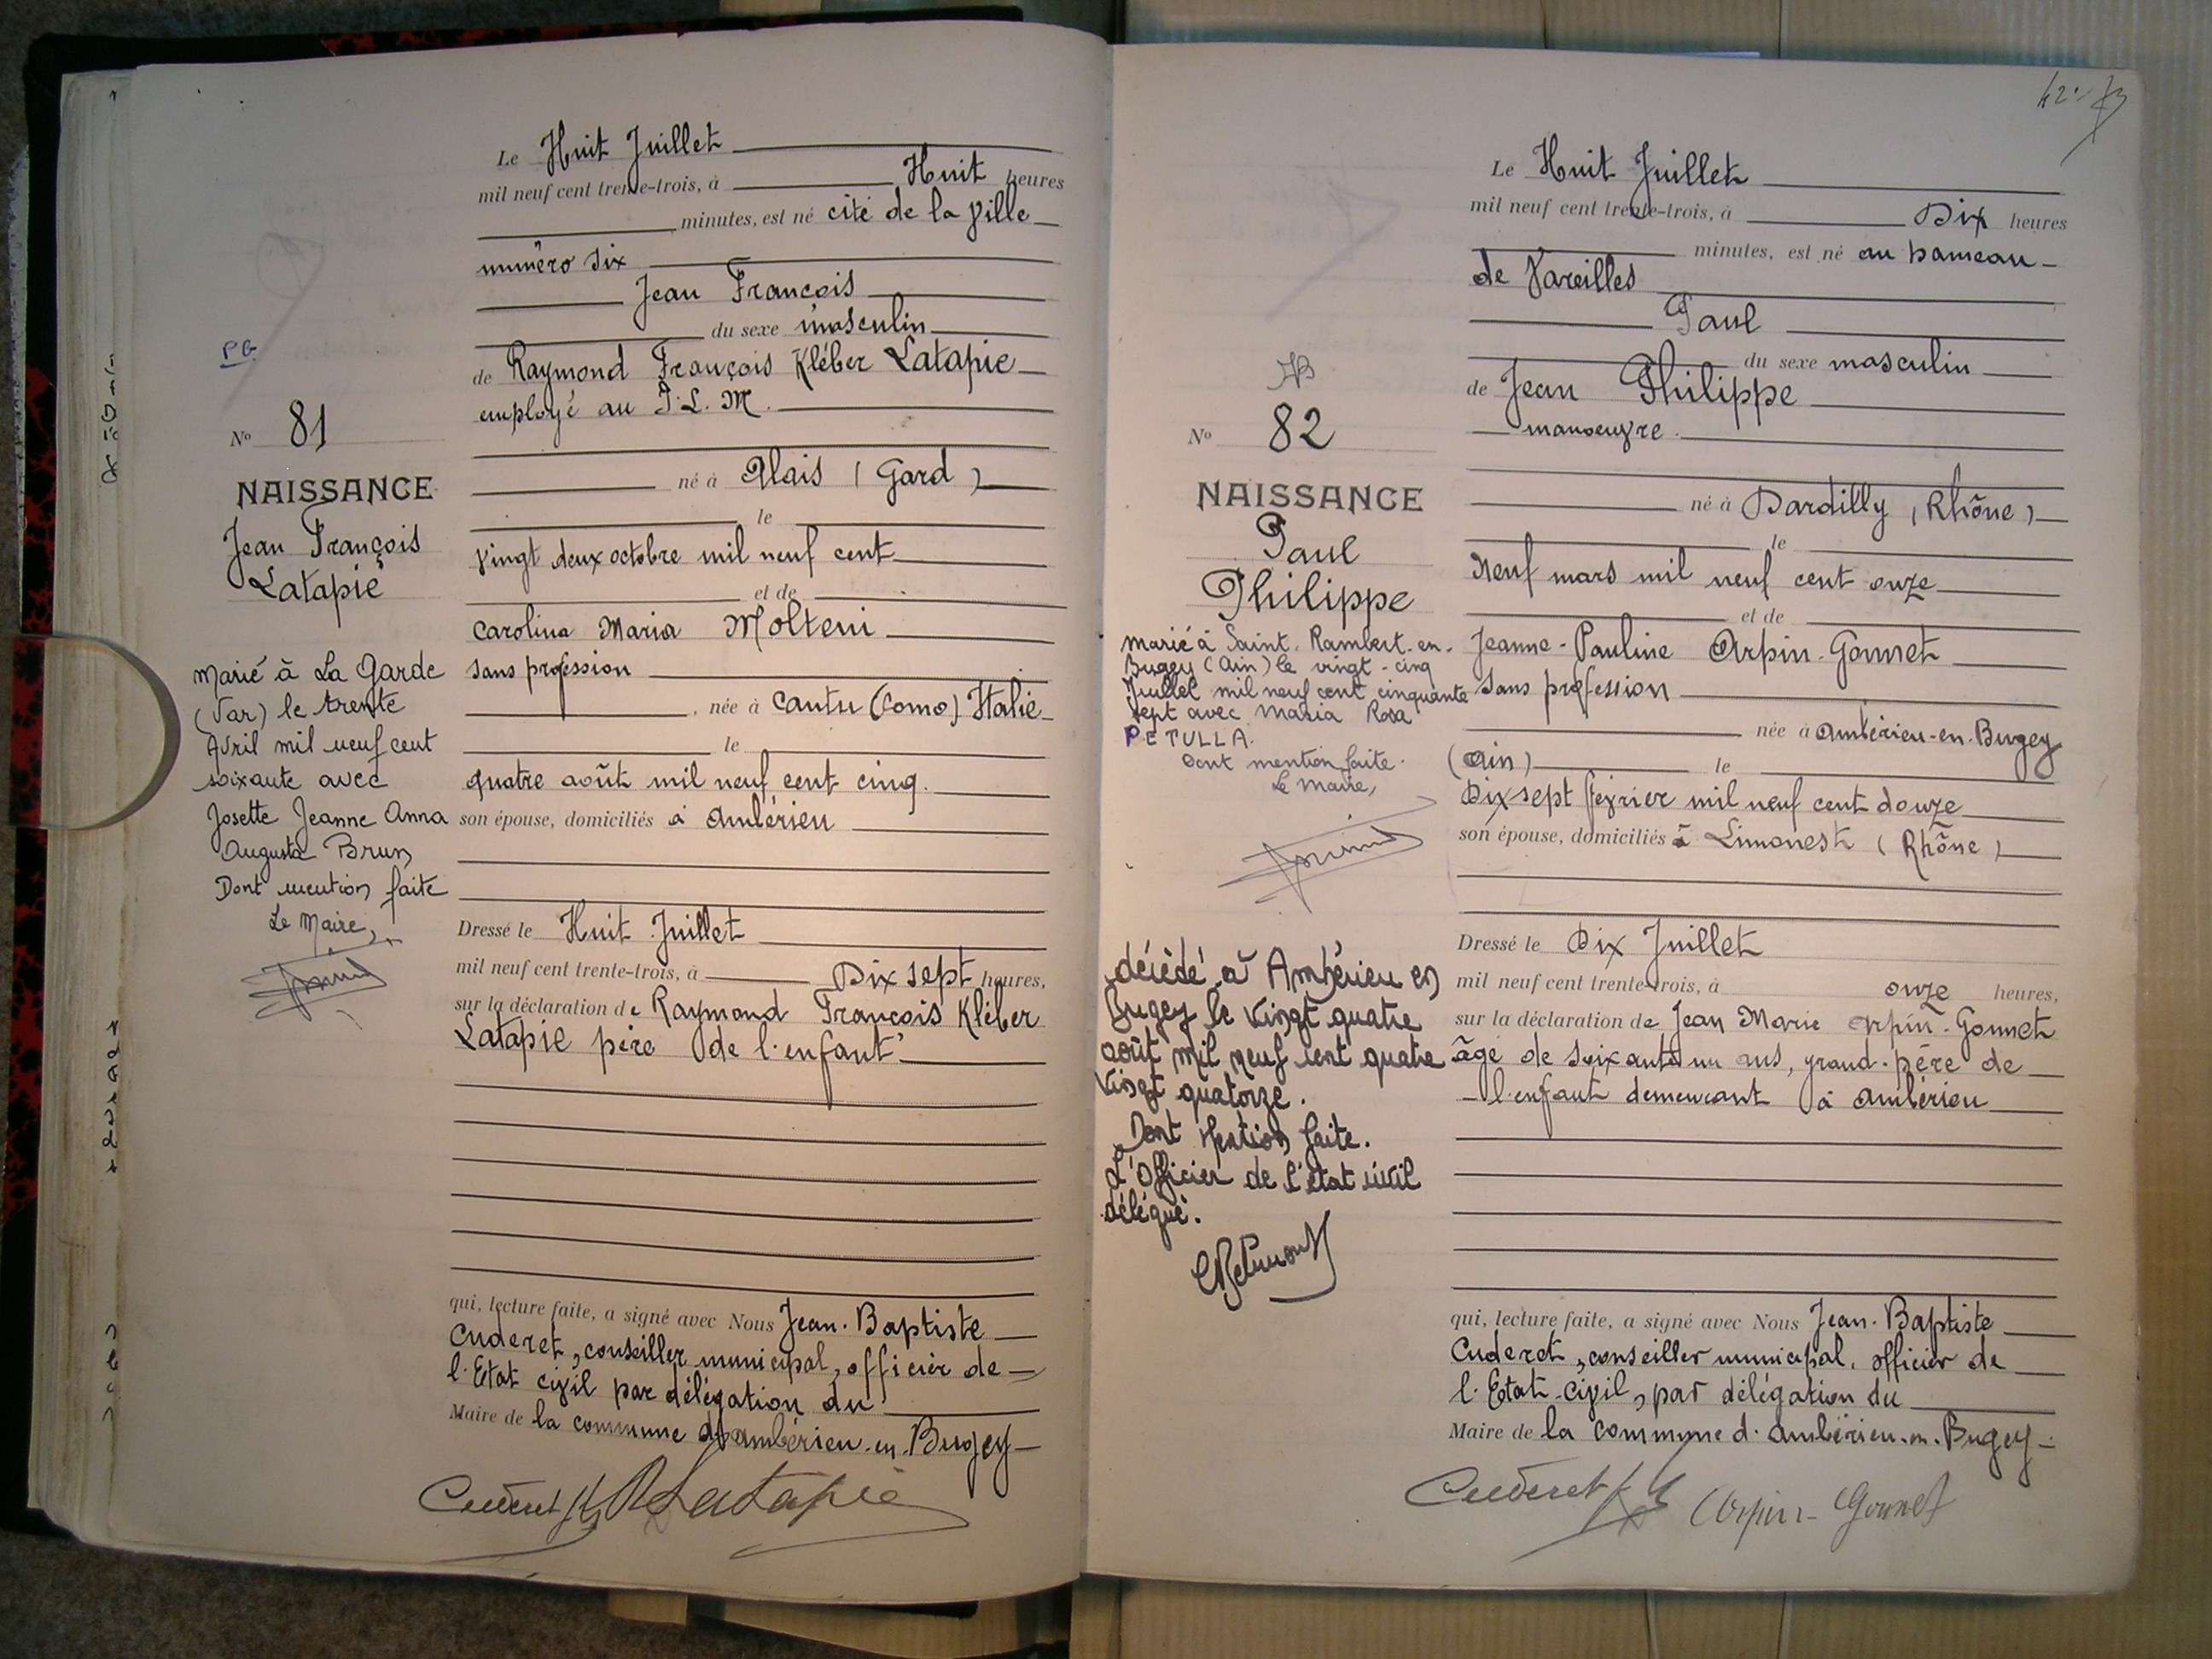 Le Huit Juillet
mil neuf cent trente-trois, à Huit heures
minutes, est né cité de la Ville
numéro six
Jean François
du sexe masculin
de Raymond François Kléber Latapie
employé au P.L.M.
né à Alais (Gard)
le
vingt deux octobre mil neuf cent
et de
Carolina Maria Molteni
sans profession
, née à Cantu (Como) Italie
le
quatre août mil neuf cent cinq.
son épouse, domiciliés à Ambérieu
Dressé le Huit Juillet
mil neuf cent trente-trois, à Dix sept heures,
sur la déclaration de Raymond François Kléber
Latapie père de l'enfant
qui, lecture faite, a signé avec Nous Jean-Baptiste
Cuderet, conseiller municipal, officier de
l'Etat civil par délégation du
Maire de la commune d'Ambérieu-en-Bugey
Cuderet Latapie
PG
No 81
NAISSANCE
Jean François
Latapie
Marié à La Garde
(Var) le trente
Avril mil neuf cent
soixante avec
Josette Jeanne Anna
Augusta Brun
Dont mention faite
Le Maire,
Le Huit Juillet
mil neuf cent trente-trois, à Dix heures
minutes, est né au hameau
de Vareilles
Paul
du sexe masculin
de Jean Philippe
manoeuvre
né à Dardilly (Rhône)
le
Neuf mars mil neuf cent onze
et de
Jeanne-Pauline Arpin-Gonnet
sans profession
née à Ambérieu-en-Bugey
(Ain) le
Dix sept février mil neuf cent douze
son épouse, domiciliés à Limonest (Rhône)
Dressé le Dix Juillet
mil neuf cent trente-trois, à onze heures,
sur la déclaration de Jean Marie Arpin-Gonnet
âgé de soixante un ans, grand-père de
l'enfant demeurant à Ambérieu
qui, lecture faite, a signé avec Nous Jean-Baptiste
Cuderet, conseiller municipal, officier de
l'Etat-Civil, par délégation du
Maire de la commune d'Ambérieu-en-Bugey
Cuderet Arpin-Gonnet
No 82
NAISSANCE
Paul
Philippe
marié à Saint-Rambert-en-
Bugey (Ain) le vingt-cinq
Juillet mil neuf cent cinquante
sept avec Maria Rosa
PETULLA.
Dont mention faite.
Le Maire,
décédé à Ambérieu en
Bugey le vingt quatre
août mil neuf cent quatre
vingt quatorze.
Dont Mention faite.
L'Officier de l'état civil
délégué.